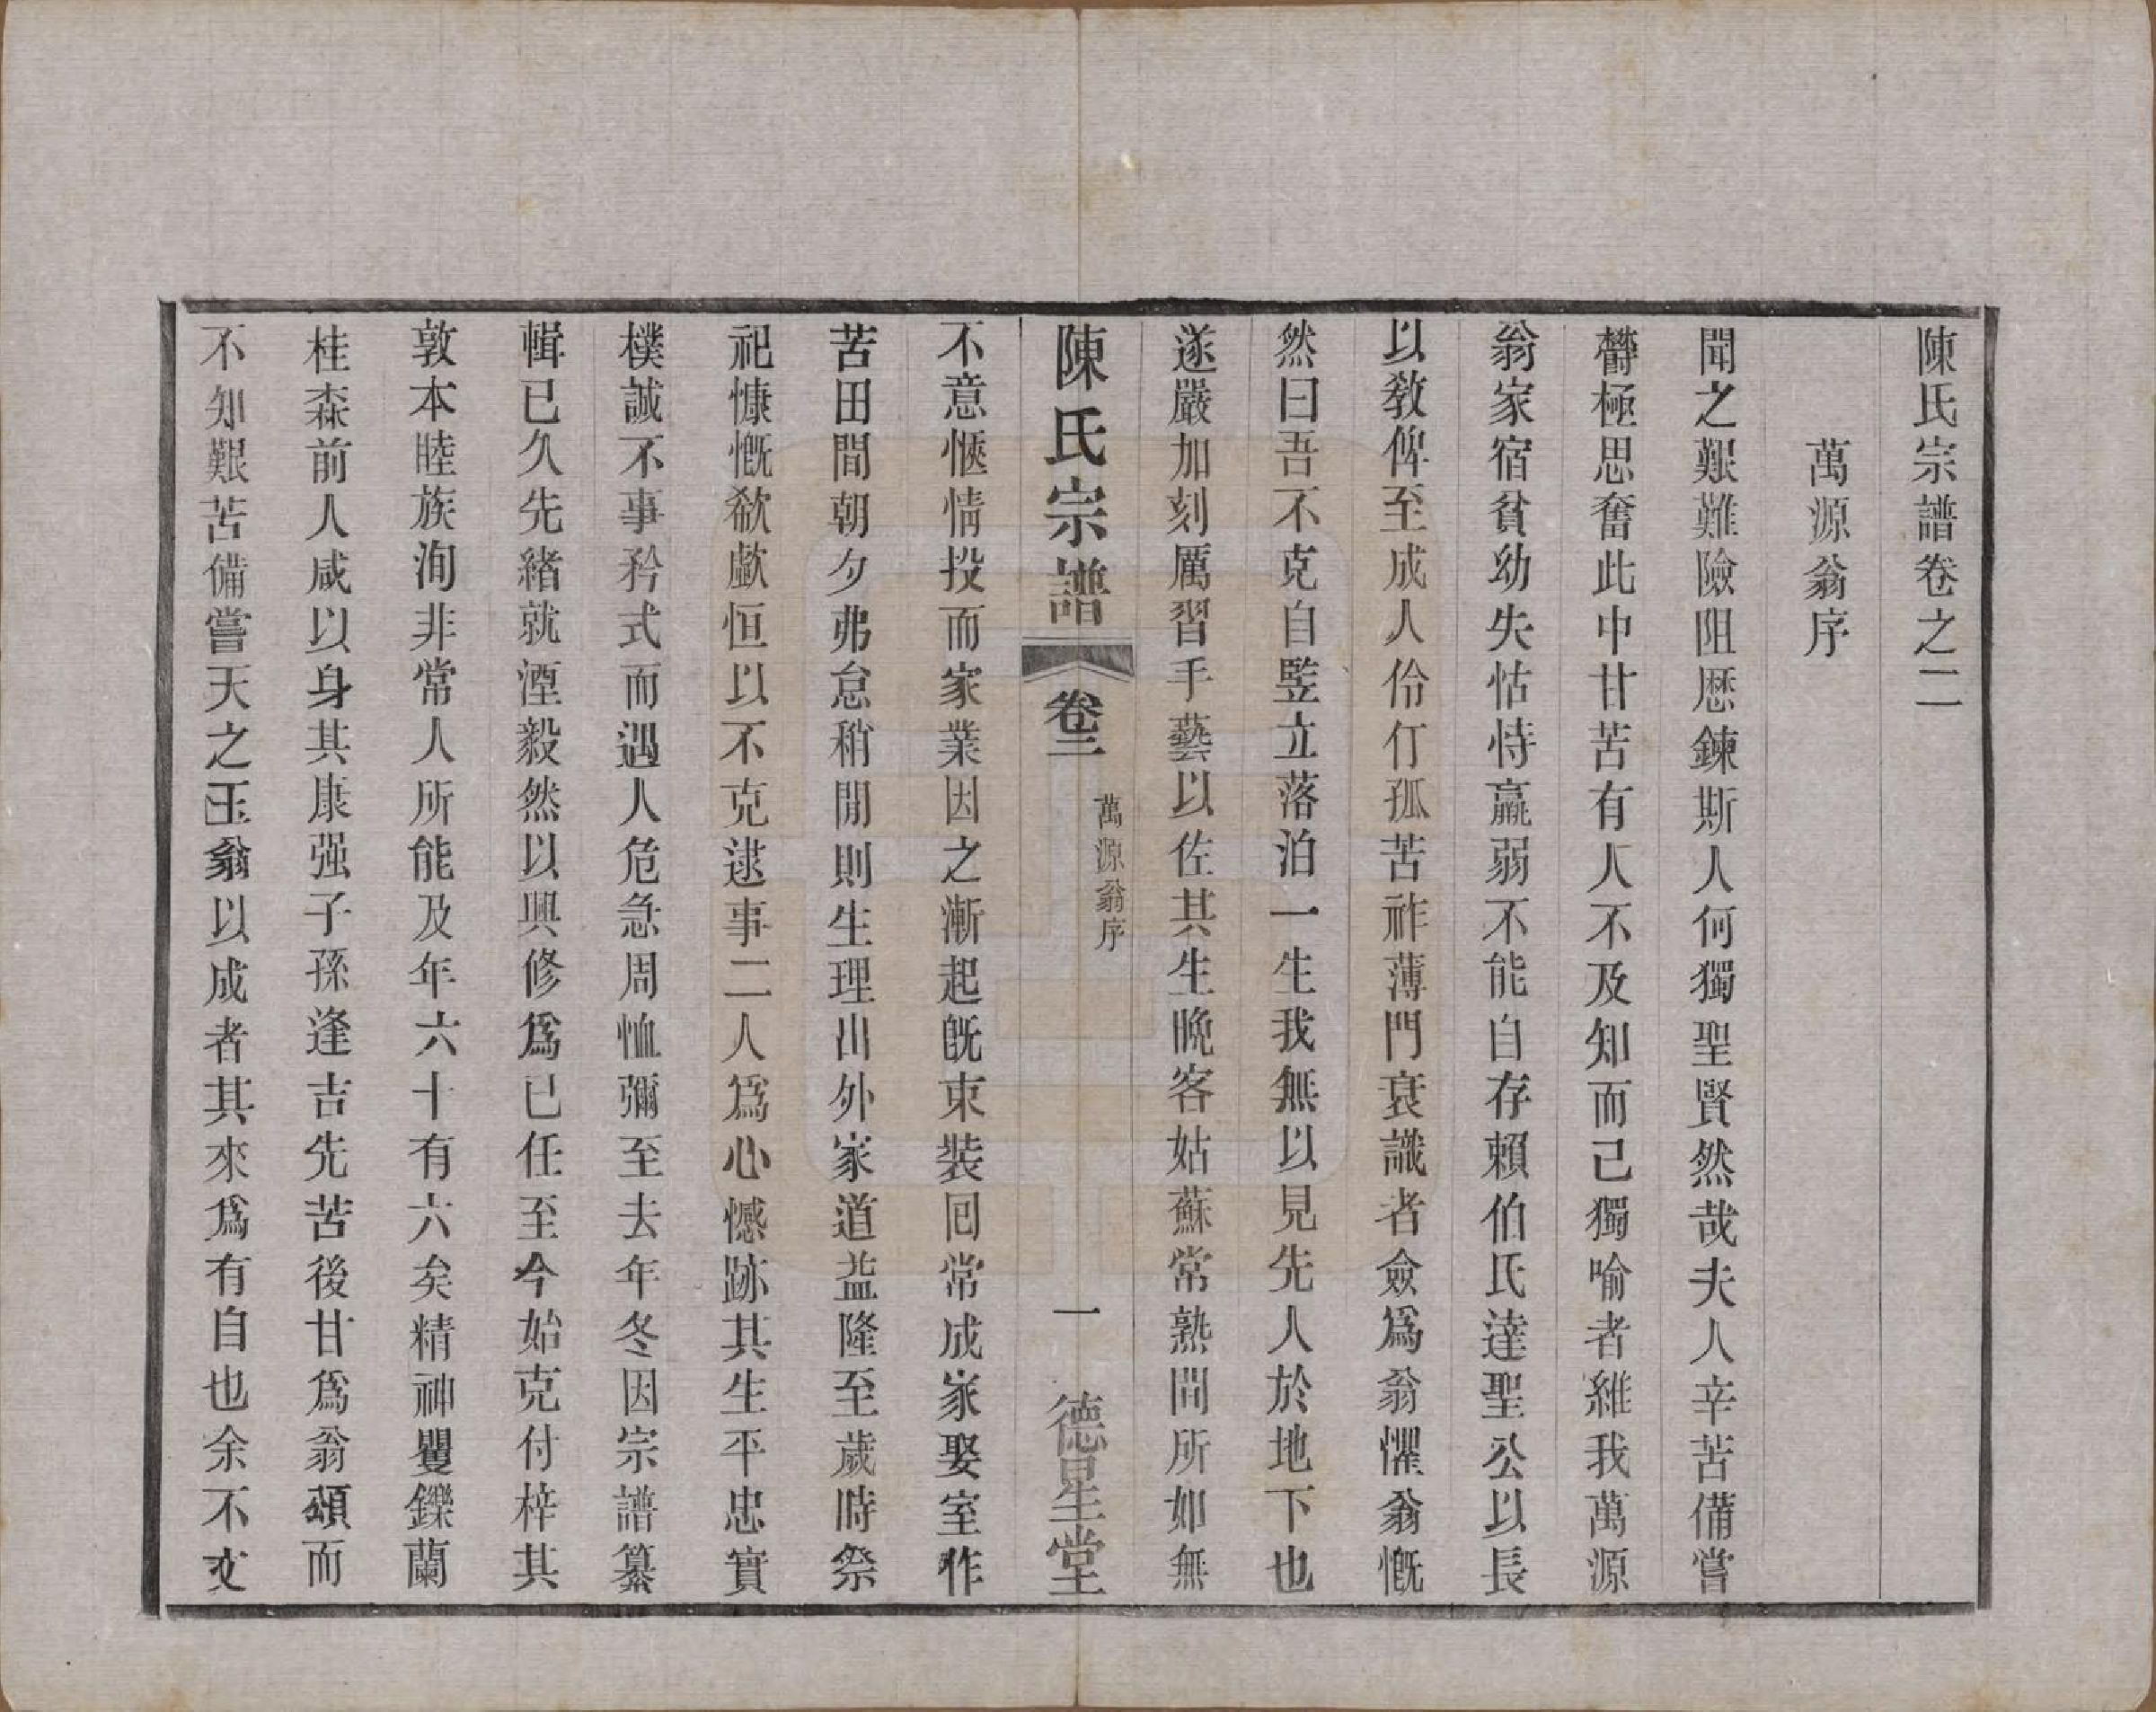 陳氏宗譜卷之二
萬源翁序
聞之艱難險阻歷鍊斯人何獨聖賢然哉夫人辛苦備嘗
欝極思奮此中甘苦有人不及知而己獨喻者維我萬源
翁家宿貧幼失怙恃羸弱不能自存賴伯氏達聖公以長
以教俾至成人伶仃孤苦祚薄門衰識者僉爲翁懼翁慨
然曰吾不克自豎立落泊一生我無以見先人於地下也
遂嚴加刻厲習手藝以佐其生晚客姑蘇常熟間所如無
陳氏宗譜
卷二
萬源翁序
一
德星堂
不意愜情投而家業因之漸起旣束裝回常成家娶室作
苦田間朝夕弗怠稍閒則生理出外家道益隆至歲時祭
祀慷慨欷歔恒以不克逮事二人爲心憾跡其生平忠實
樸誠不事矜式而遇人危急周恤彌至去年冬因宗譜纂
輯已久先緒就湮毅然以興修爲已任至今始克付梓其
敦本睦族洵非常人所能及年六十有六矣精神矍鑠蘭
桂森前人咸以身其康强子孫逢吉先苦後甘爲翁頌而
不知艱苦備嘗天之玉翁以成者其來爲有自也余不文